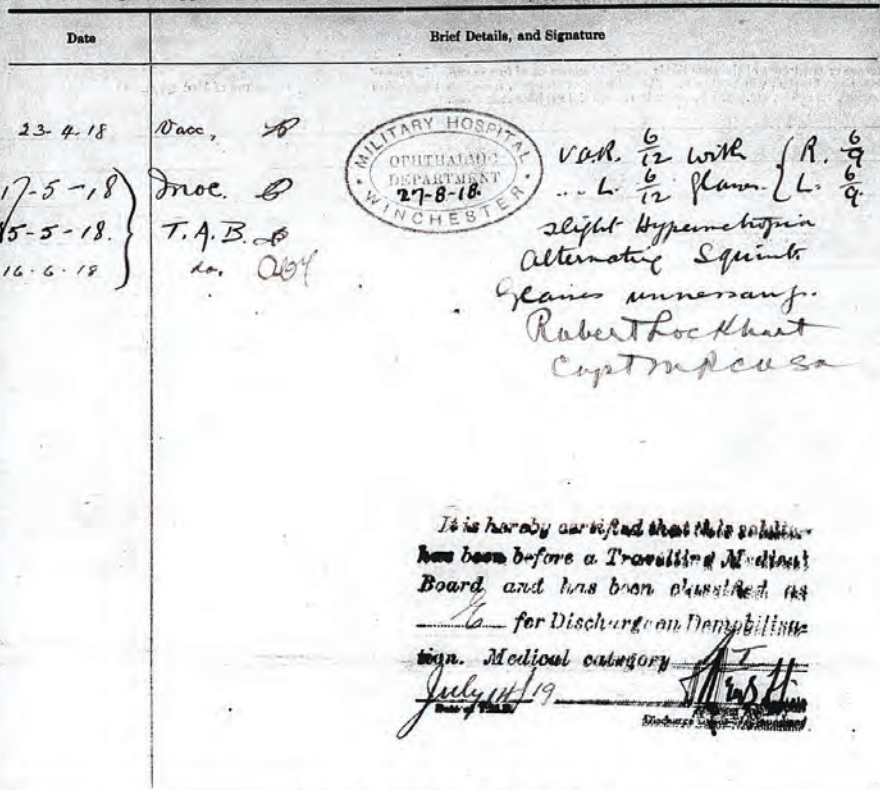 Date Brief Details, and Signature
23-4-18 Vacc,
17-5-18 Inoc.
5-5-18. T. A. B.
16-6-18 do.
MILITARY HOSPITAL
OPHTHALMIC
DEPARTMENT
27-8-18.
WINCHESTER
V.O.R. 6/12 with { R. 6/9
.. L. 6/12 glasses { L. 6/9
slight Hypermetropia
Alternating Squint.
Glasses unnessary.
Robert Lockhart
Capt M R C U S a
It is hereby certified that this soldier
has been before a Travelling Medical
Board and has been classified as
E for Discharge on Demobilisa-
tion. Medical category I
July 14/19
Date of T.M.B.